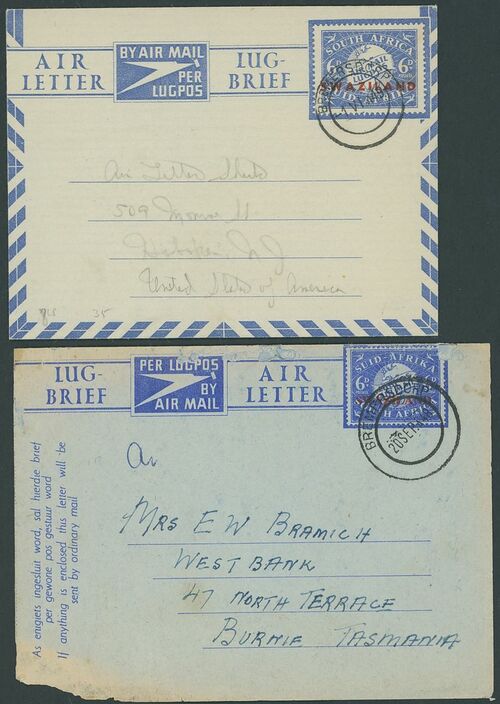 AIR LETTER
BY AIR MAIL
PER LUGPOS
LUG-BRIEF
SOUTH AFRICA
6D 6D
SWAZILAND
Air Letter Sheets
509 Monroe St.
Hoboken, N J
United States of America
35
LUG-BRIEF
PER LUGPOS
BY AIR MAIL
AIR LETTER
SUID-AFRIKA
6D
BREMERSDORP
20 SEP
As enigiets ingesluit word, sal hierdie brief
per gewone pos gestuur word
If anything is enclosed this letter will be
sent by ordinary mail
MRS E W BRAMICH
WEST BANK
47 NORTH TERRACE
BURNIE TASMANIA